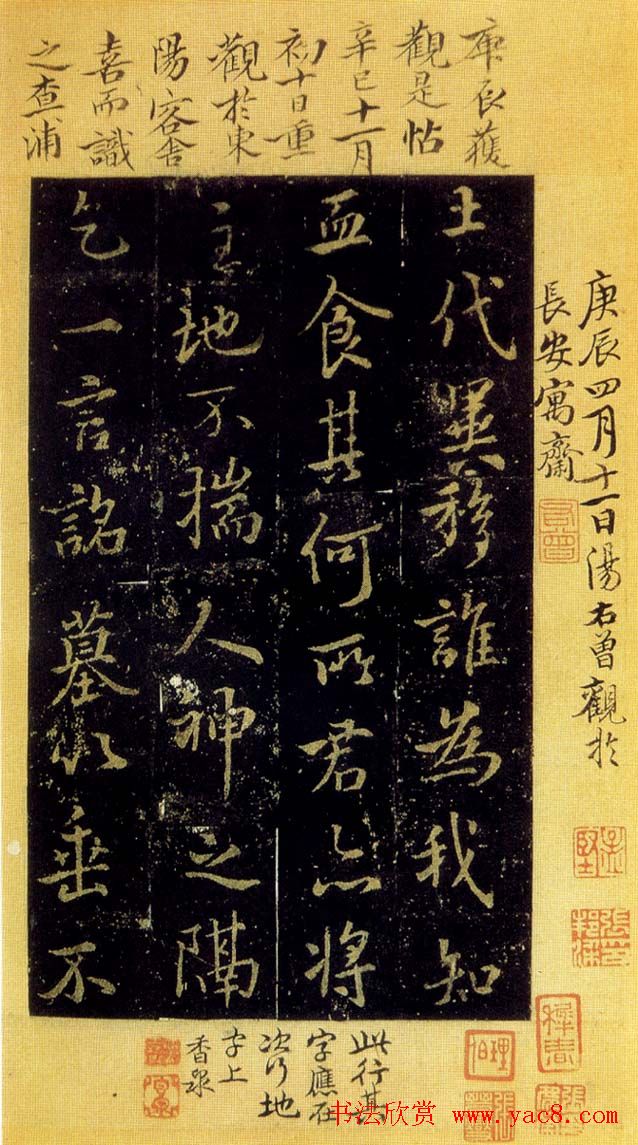 庚辰獲
觀是帖
辛巳十一月
初十日重
觀於東
陽客舍
喜而識
之查浦
庚辰四月十一日湯右曾觀於
長安寓齋
右曾
土代異移誰為我知
血食其何所君亦將
主地不揣人神之隔
乞一言銘墓以垂不
此行其
字應在
次行地
字上
香泉
书法欣赏 www.yac8.com